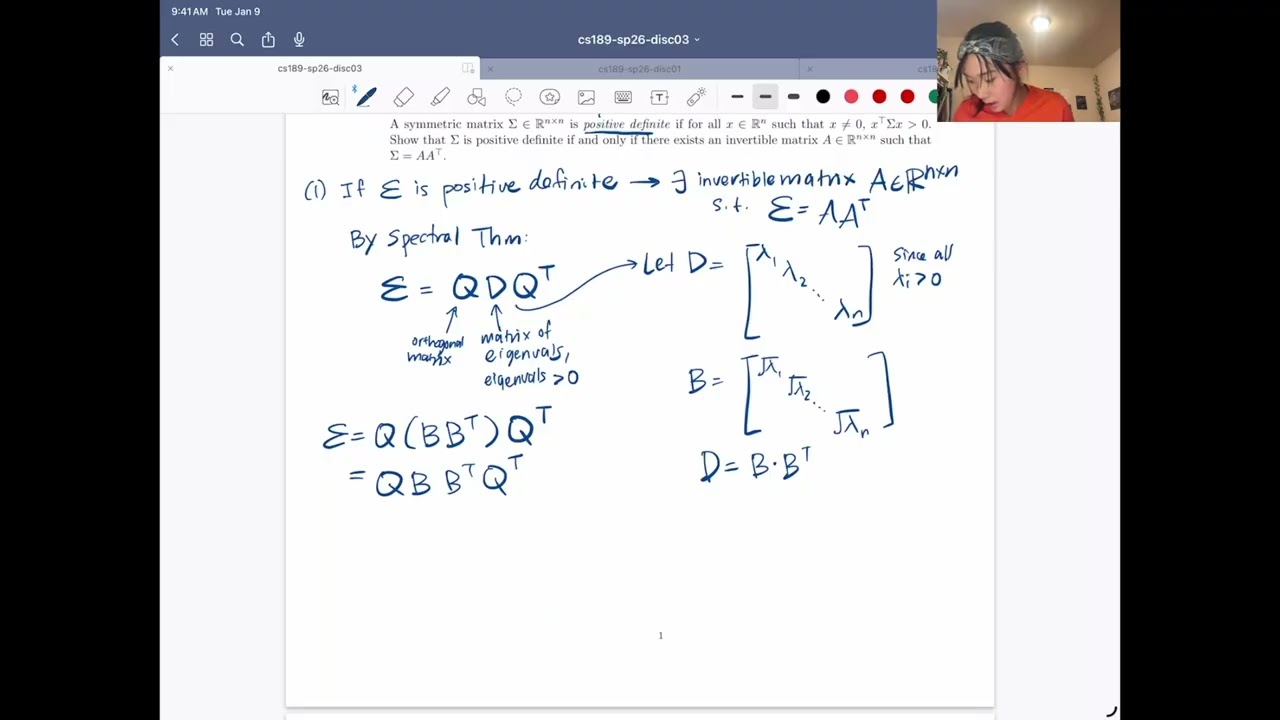 9:41 AM Tue Jan 9
cs189-sp26-disc03
cs189-sp26-disc03
cs189-sp26-disc01
A symmetric matrix Σ ∈ ℝⁿˣⁿ is positive definite if for all x ∈ ℝⁿ such that x ≠ 0, xᵀΣx > 0.
Show that Σ is positive definite if and only if there exists an invertible matrix A ∈ ℝⁿˣⁿ such that
Σ = AAᵀ.
(1) If Σ is positive definite → ∃ invertible matrix A ∈ ℝⁿˣⁿ
s.t. Σ = AAᵀ
By Spectral Thm:
Σ = QDQᵀ
orthogonal matrix
matrix of
eigenvals,
eigenvals > 0
Let D = [λ₁ λ₂ ⋱ λₙ]
since all
λi > 0
B = [√λ₁ √λ₂ ⋱ √λₙ]
D = B·Bᵀ
Σ = Q(BBᵀ)Qᵀ
= QB BᵀQᵀ
1